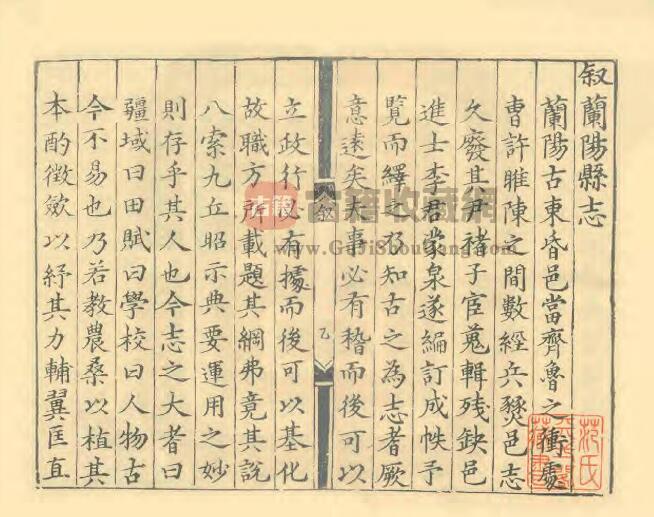 叙蘭陽縣志
蘭陽古東昏邑當齊魯之衝處
曹許睢陳之間數經兵燹邑志
久廢其尹褚子宦蒐輯残缺邑
進士李君蒙泉遂編訂成帙予
覽而繹之乃知古之為志者厥
意遠矣夫事必有稽而後可以
叙
乙
立政行必有據而後可以基化
故職方所載題其綱弗竟其說
八索九丘昭示典要運用之妙
則存乎其人也今志之大者曰
疆域曰田賦曰學校曰人物古
今不易也乃若教農桑以植其
本酌徵斂以紓其力輔翼匡直
古籍收藏網
www.GuJiShouCang.com
范氏
天一閣
藏書